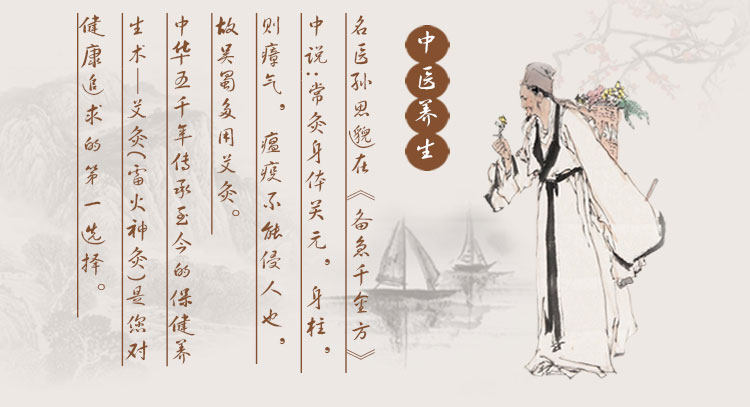 中医养生
名医孙思邈在《备急千金方》
中说:常灸身体关元，身柱，
则瘴气，瘟疫不能侵人也，
故吴蜀多用艾灸。
中华五千年传承至今的保健养
生术—艾灸(雷火神灸)是您对
健康追求的第一选择。